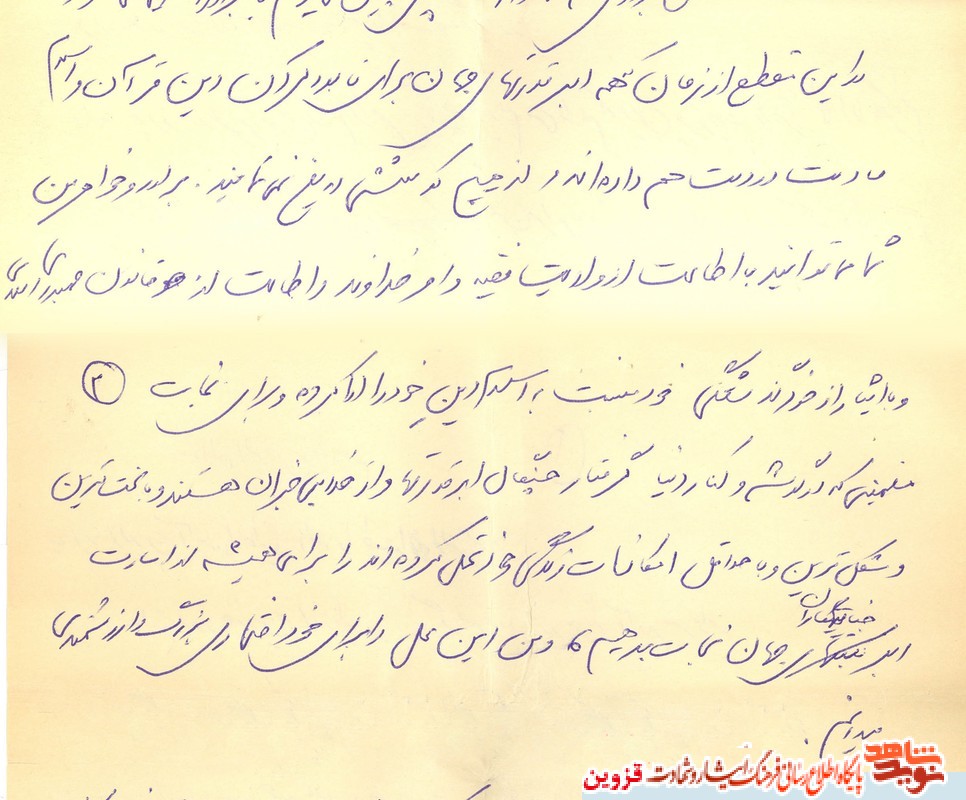 در این مقطع از زمان که همه ابر قدرتهای جهان برای نابود کردن دین قرآن و اسلام
دست در دست هم داده‌اند و از هیچ کوششی دریغ نمی‌نمایند. برادر و خواهر من
شما می‌توانید با اطاعت از ولایت فقیه و امر خداوند و اطاعت از قانون جمهوری اسلامی
و با ایثار از خود نسبت به اسلام دین خود را ادا کرده و برای نجات ③
مسلمینی که در گوشه و کنار دنیا گرفتار چنگال ابرقدرتها و از خدا بی‌خبران هستند و با سخت‌ترین
و مشکل‌ترین و با حداقل امکانات زندگی خو تحمل کرده‌اند را برای همیشه از اسارت
جنایتکاران
ابر جهان نجات بدهیم و من این عمل را برای خود افتخاری بزرگ و ارزشمندی
میدانم.
نوید شاهد پایگاه اطلاع رسانی فرهنگ ایثار و شهادت قزوین